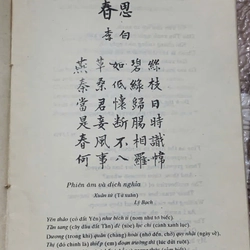 春思
李白
燕草如碧絲
秦桑低綠枝
當君懷歸日
是妾斷腸時
春風不相識
何事入羅幃
Phiên âm và dịch nghĩa
Xuân tứ (Tứ xuân)
Lý Bạch
Yên thảo (cỏ đất Yên) như bích ti (non như tơ biếc),
Tần tang (cây dâu đất Tần) đê lục chi (cành xanh lục).
Đương (trong khi) quân (chàng) hoài (nhớ đến, quy nhật (ngày về),
Thị (đó chính là) thiếp (em) đoạn trường thì (lúc đứt ruột).